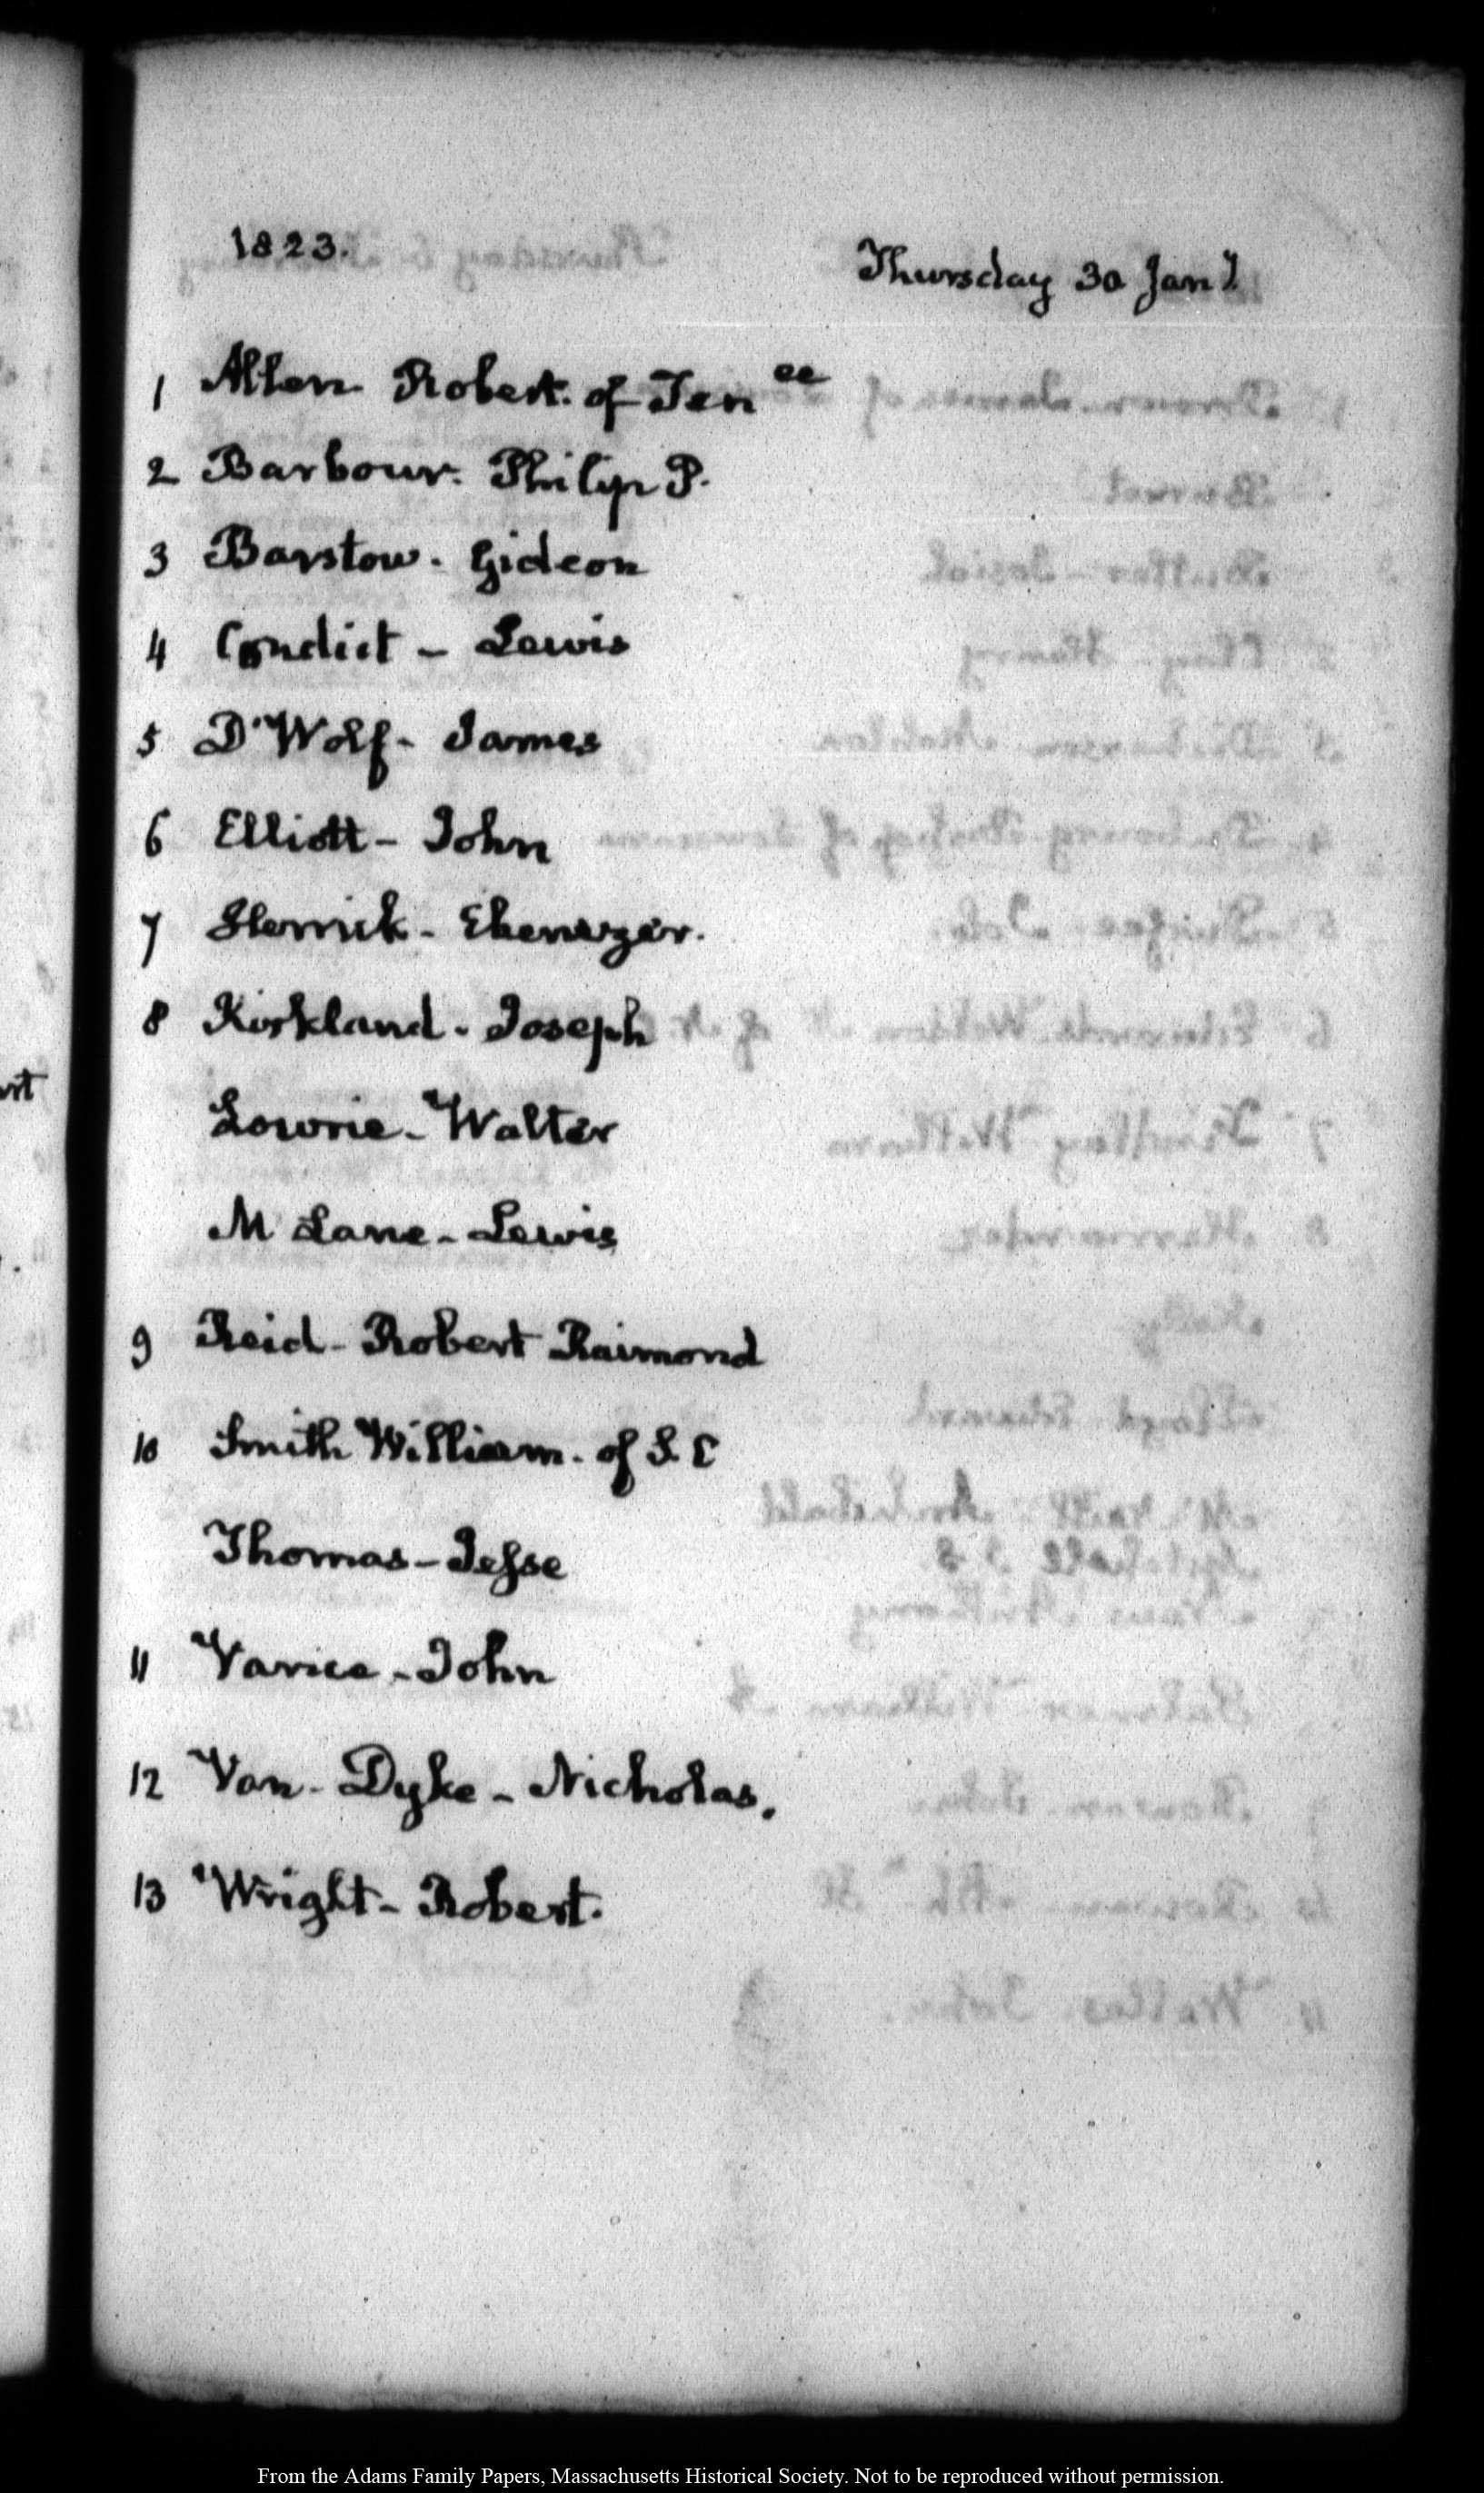 1823.
Thursday 30 Jany
1 Allen Robert of Tenee
2 Barbour. Philip P.
3 Barstow. Gideon
4 Condict - Lewis
5 D'Wolf - James
6 Elliott - John
7 Herrick - Ebenezer.
8 Kirkland - Joseph
Lowrie - Walter
M Lane - Lewis
9 Reid - Robert Raimond
10 Smith William. of S. C
Thomas - Jesse
11 Vance - John
12 Van - Dyke - Nicholas.
13 Wright - Robert.
From the Adams Family Papers, Massachusetts Historical Society. Not to be reproduced without permission.